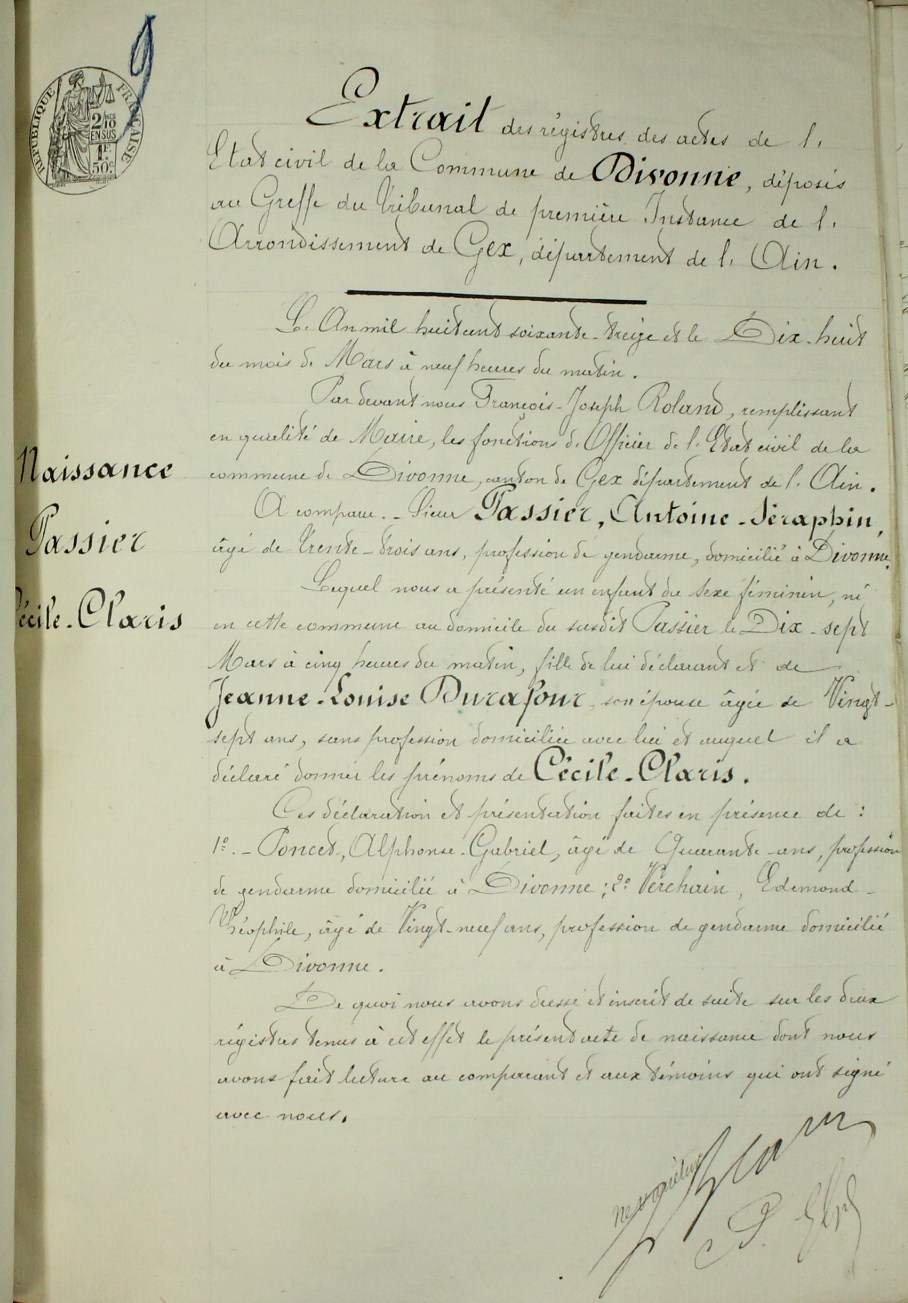 9
RÉPUBLIQUE FRANÇAISE
2/10
EN SUS
1F
50c
Extrait des régistres des actes de l'
Etat civil de la Commune de Divonne, déposés
au Greffe du Tribunal de première Instance de l'
Arrondissement de Gex, département de l'Ain.
L'An mil huit cent soixante-treize et le Dix-huit
du mois de Mars à neuf heures du matin.
Par devant nous François-Joseph Roland, remplissant
en qualité de Maire, les fonctions d'Officier de l'Etat civil de la
commune de Divonne, canton de Gex département de l'Ain.
A comparu - Sieur Passier, Antoine-Séraphin,
âgé de Trente-trois ans, profession de gendarme, domicilié à Divonne.
Lequel nous a présenté un enfant du sexe féminin, né
en cette commune au domicile du susdit Passier le Dix-sept
Mars à cinq heures du matin, fille de lui déclarant et de
Jeanne-Louise Durafour, son épouse âgée de Vingt-
sept ans, sans profession domiciliée avec lui et auquel il a
déclaré donner les prénoms de Cécile-Claris.
Ces déclaration et présentation faites en présence de :
1º.- Poncet, Alphonse-Gabriel, âgé de Quarante ans, profession
de gendarme domicilié à Divonne; 2º Verchain, Edemond-
Théophile, âgé de Vingt-neuf ans, profession de gendarme domicilié
à Divonne.
De quoi nous avons dressé et inscrit de suite sur les deux
régistres tenus à cet effet le présent acte de naissance dont nous
avons fait lecture au comparant et aux témoins qui ont signé
avec nous.
Naissance
Passier
Cécile-Claris